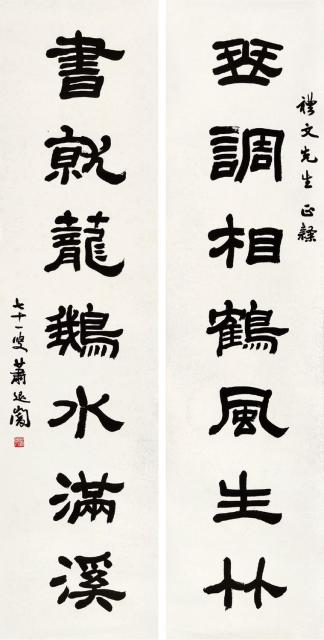 禮文先生 正隸
琴調相鶴風生竹
書就籠鵝水滿溪
七十一叟 蕭退闇